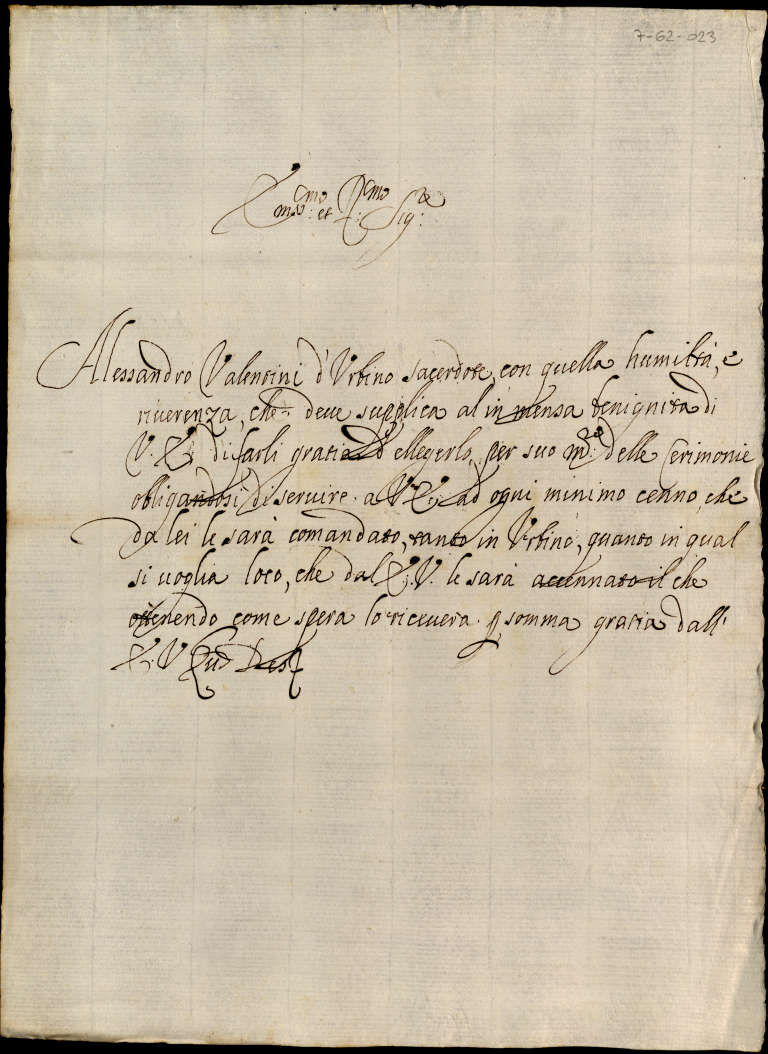 7-62-023
Em.mo et R.mo Sig.re
Alessandro Valentini d'Urbino sacerdote, con quella humiltà, e
riverenza, che deve supplica al inmensa benignità di
V. E. di farli gratia d'ellegerlo, per suo m.ro delle Cerimonie
obligandosi di servire a V. E. ad ogni minimo cenno, che
da lei le sarà comandato, tanto in Urbino, quanto in qual
si voglia loco, che dal E. V. le sarà accennato il che
ottenendo come spera lo riceverà p somma gratia dall'
E. V. Quas Deus